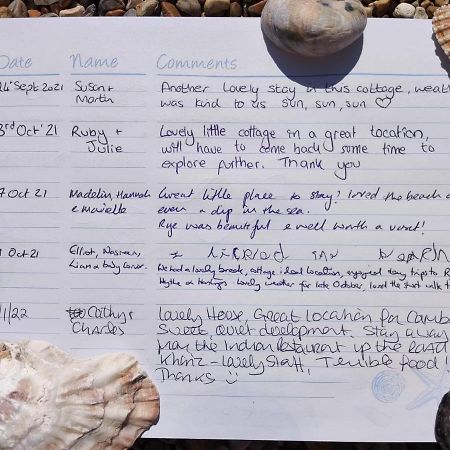 Date Name Comments
Sept 2021 Susan + Martin Another lovely stay in this cottage, weath
was kind to us sun, sun, sun
3rd Oct '21 Ruby + Julie Lovely little cottage in a great location,
will have to come back some time to
explore further. Thank you
7 Oct 21 Madelin, Hannah & Marielle Great little place to stay! Loved the beach
even a dip in the sea.
Rye was beautiful & well worth a visit!
Oct 21 Elliot,
Liam & baby
We had a lovely break, cottage ideal location, enjoyed day trips to R
Hythe or Hastings lovely weather for late October, loved the short walk t
1/22 Cathy & Charles Lovely House, Great Location for Camb
Sweet, Quiet development. Stay away
the Indian restaurant up the road
- lovely staff, Terrible food!
Thanks